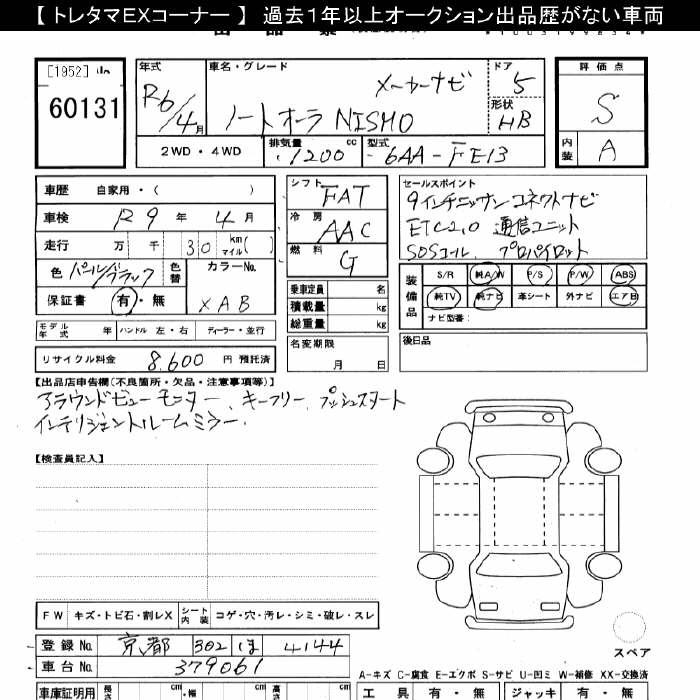 【 トレタマEXコーナー 】 過去1年以上オークション出品歴がない車両
[1952]
60131
年式 R6/4月
車名・グレード メーカーナビ
ノートオーラ NISMO
ドア 5
形状 HB
評価点 S
内装 A
2WD・4WD
排気量 1200 cc
型式 6AA-FE13
車歴 自家用・( )
車検 R9年 4月
走行 万 千 30 km マイル( )
色 パール/ブラック 色替 カラーNo.
保証書 有・無 XAB
モデル年式 年 ハンドル 左・右 ディーラー・並行
リサイクル料金 8,600 円 預託済
シフト FAT
冷房 AAC
燃料 G
乗車定員 名
積載量 kg
総重量 kg
名変期限 月 日
セールスポイント
9インチニッサンコネクトナビ
ETC2.0 通信ユニット
SOSコール、プロパイロット
装備品 S/R 純A/W P/S P/W ABS
純TV 純ナビ 革シート 外ナビ エアB
ナビ型番:
後日品
【出品店申告欄(不良箇所・欠品・注意事項等)】
アラウンドビューモニター、キーフリー、プッシュスタート
インテリジェントルームミラー、
【検査員記入】
FW キズ・トビ石・割レX シート内装 コゲ・穴・汚レ・シミ・破レ・スレ
登録No. 京都 302 ほ 4144
車台No. 379061
スペア
A-キズ C-腐食 E-エクボ S-サビ U-凹ミ W-補修 XX-交換済
車庫証明用 長さ cm ・幅 cm 高さ cm
工具 有・無 ジャッキ 有・無